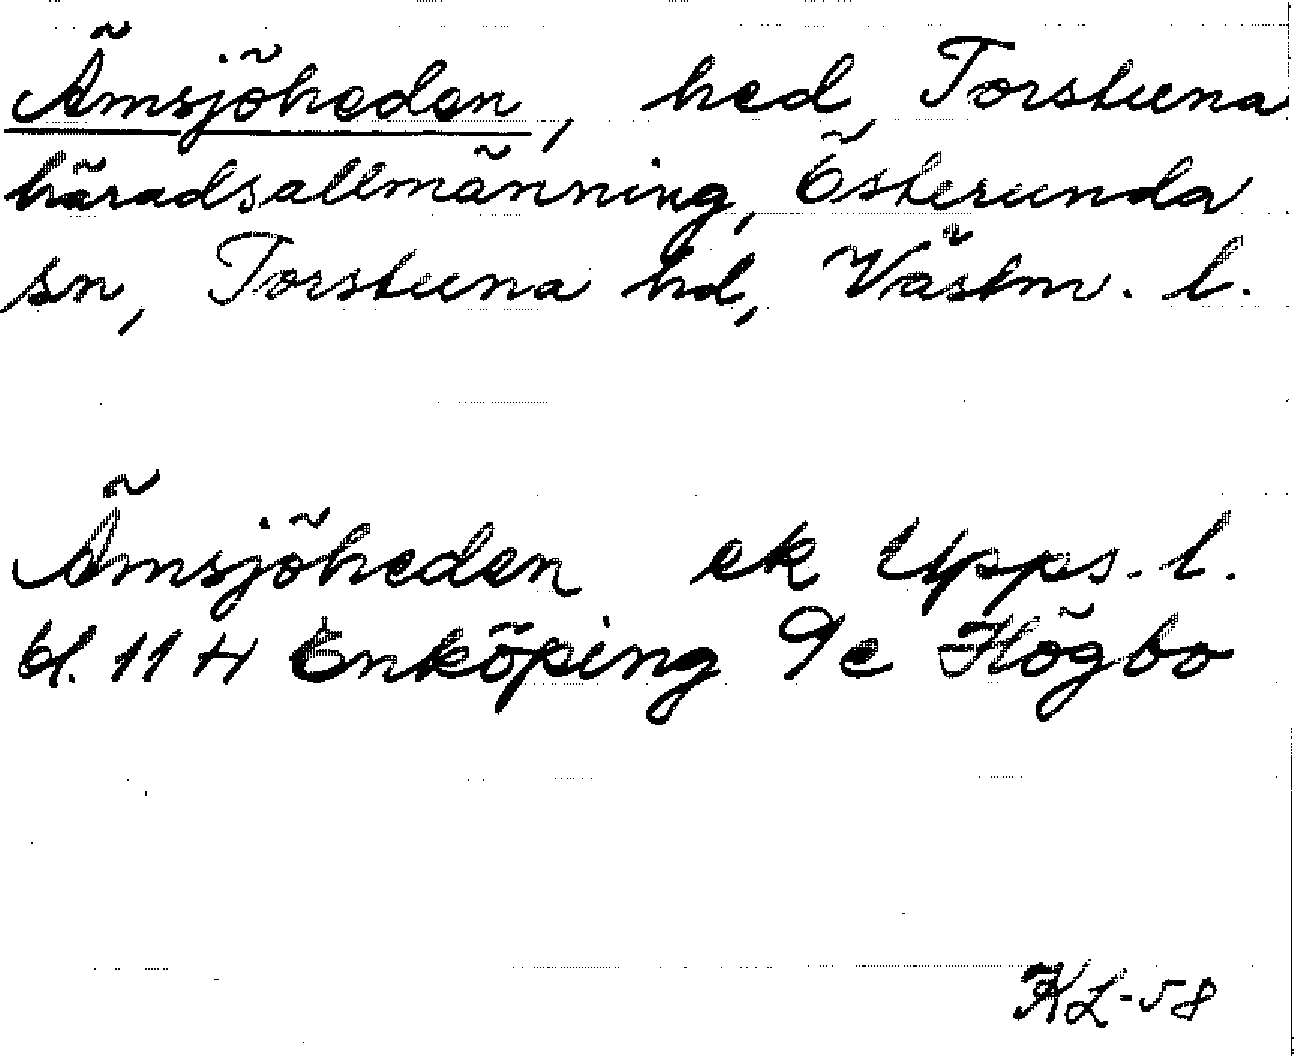 Ämsjöheden, hed, Torstuna
häradsallmänning, Österunda
sn, Torstuna hd, Västm. l.
Ämsjöheden ek Upps. l.
bl. 11 H Enköping 9 e Högbo
KL-58